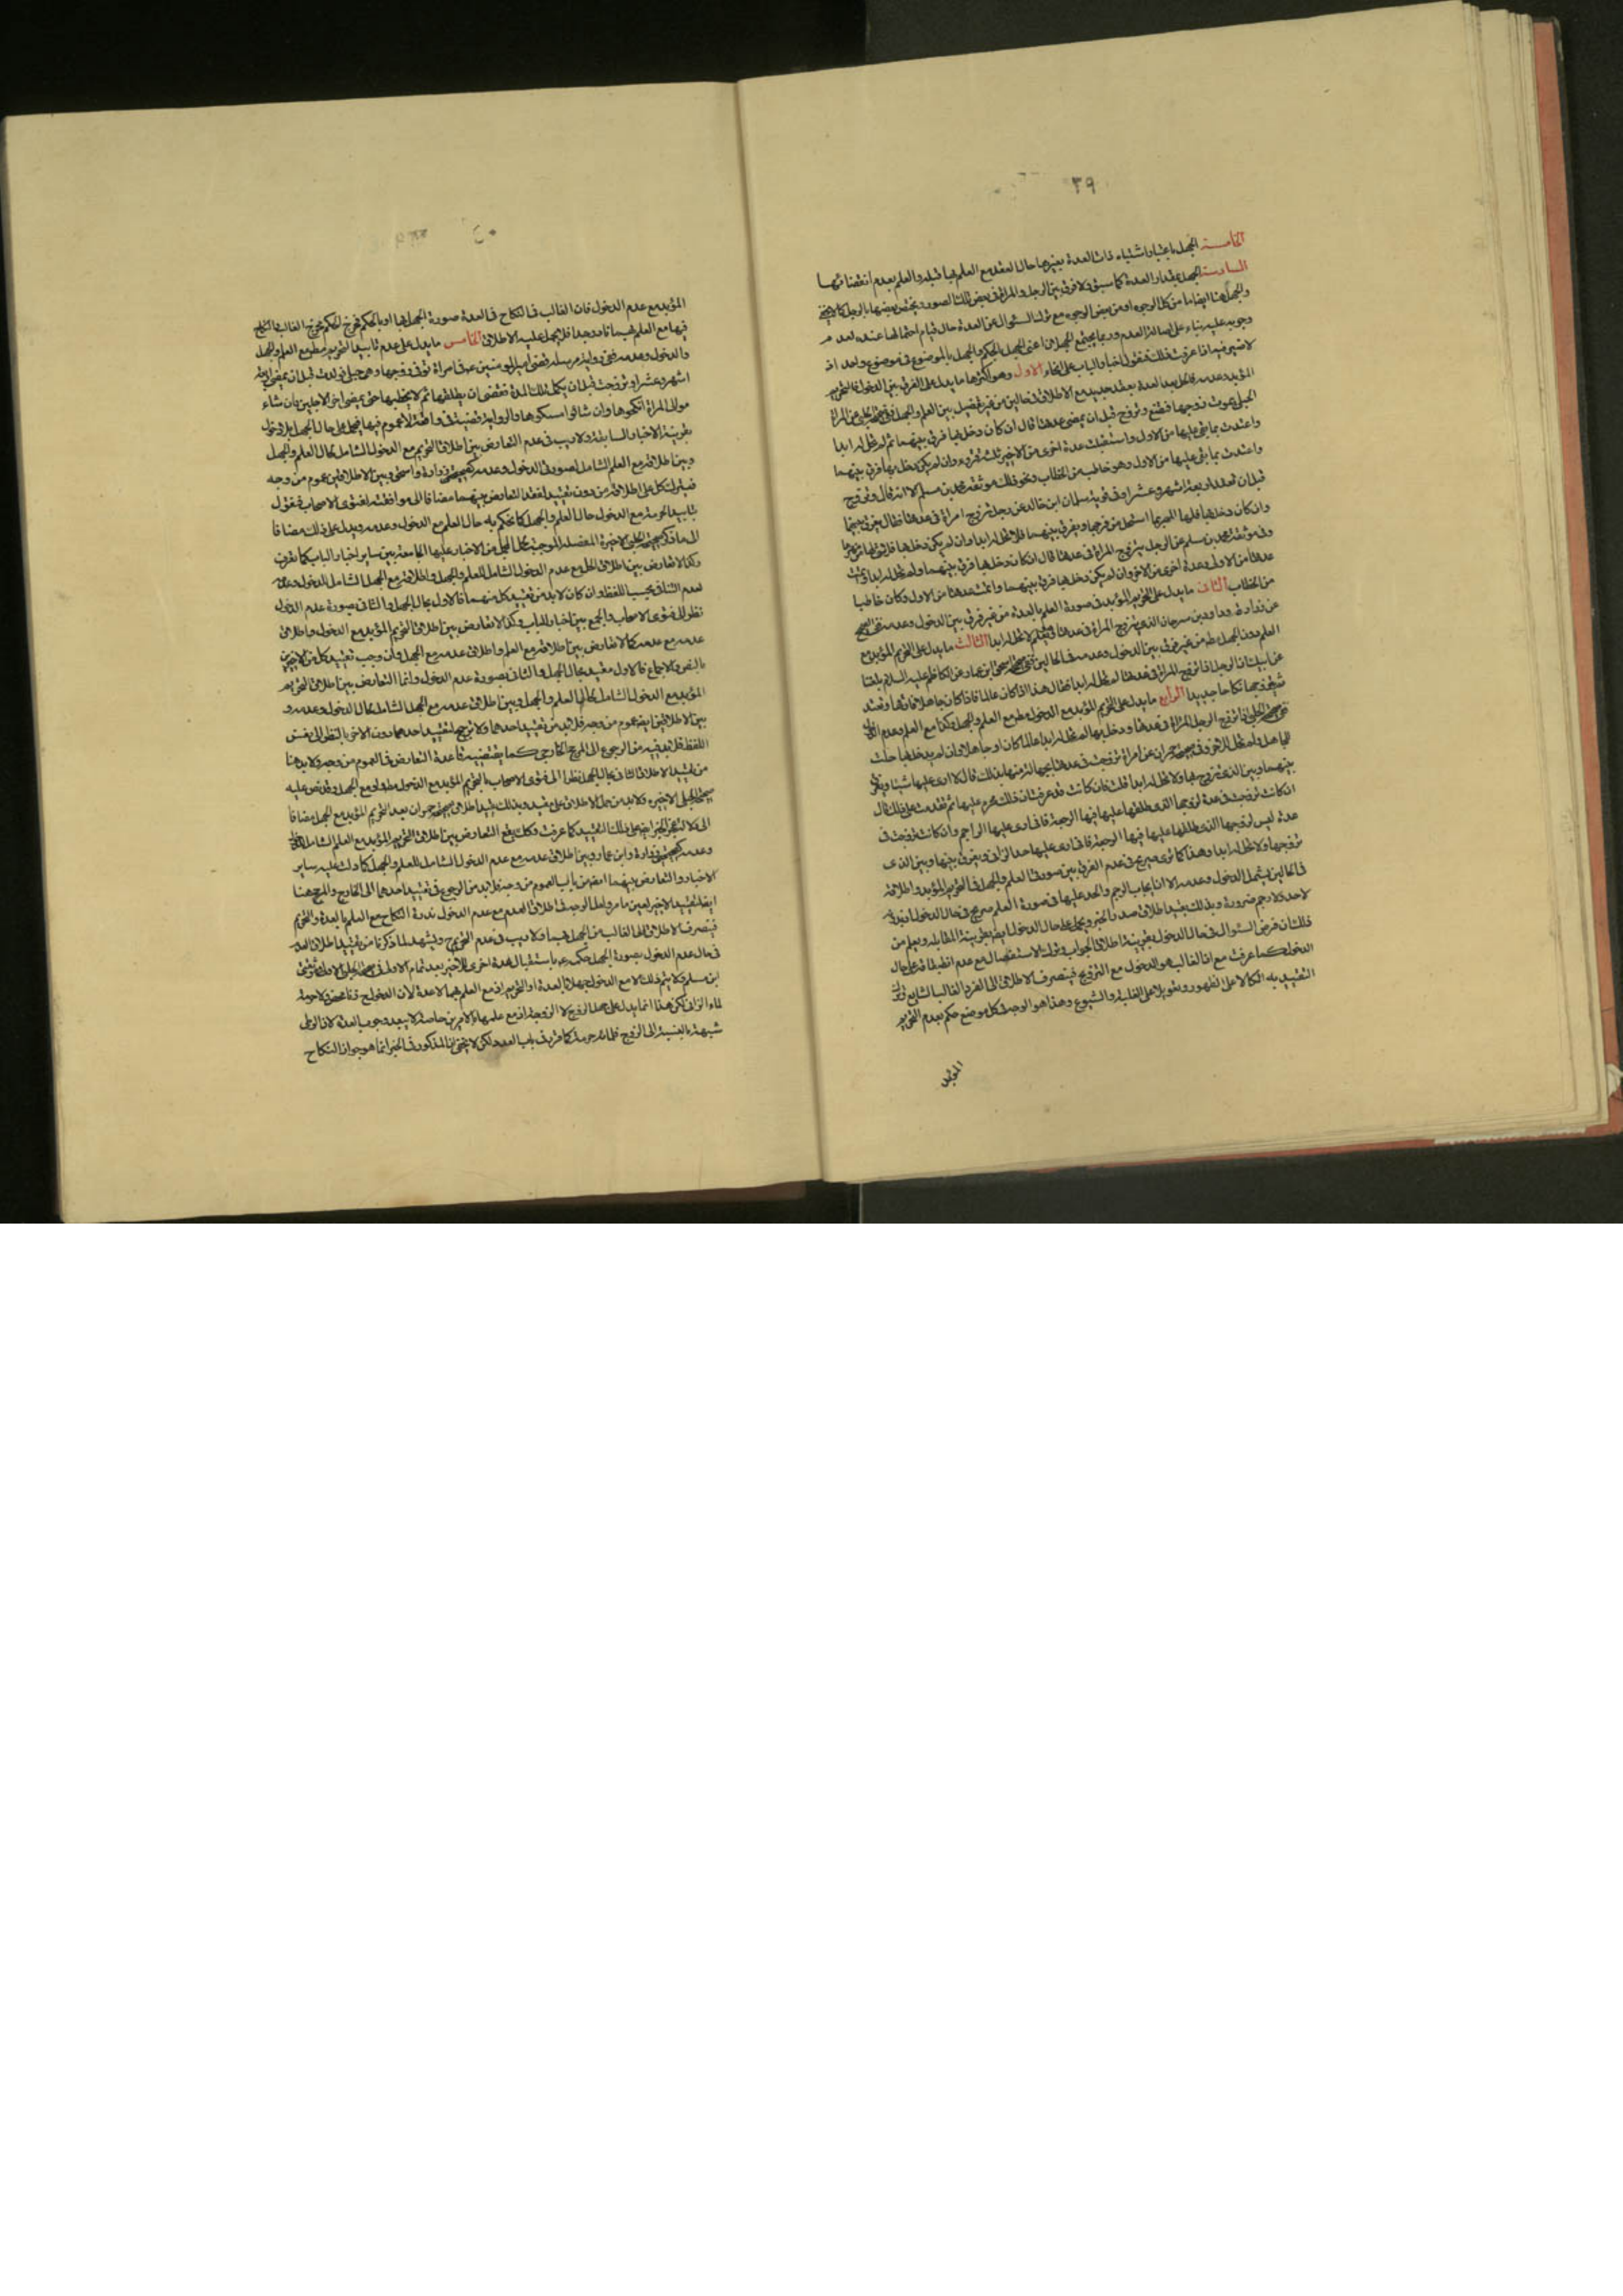 ٣٩
الخامسة الجهل باعتبار اشتباه ذات العدة بغيرها حال العقد مع العلم بها قبله والعلم بعدم انقضائها
السادسة الجهل بمقدار العدة كما سبق ولا فرق بين الرجل والمراة في بعض تلك الصور ويختص بعضها بالرجل كما
والجهل هنا من كل الوجوه او من بعض الوجوه مع ترك السؤال عن العدة حال قيام احتمالها عنده لعدم
وجوبه عليه بناء على اصالة العدم وربما يجتمع الجهلان اعني الجهل بالحكم والجهل بالموضوع في موضوع واحد اذ
لا ضير فيه اذا عرفت ذلك فنقول اخبار الباب على انحاء الاول وهو اكثرها ما يدل على الفرق بين الدخول فالتحريم
المؤبد وعدمه فالحل بعد العدة بعقد جديد مع الاطلاق في الحالين من غير تفصيل بين العلم والجهل عن المراة
الحبلى يموت زوجها فتضع وتزوج قبل ان يمضي عدتها قال ان كان دخل بها فرق بينهما ثم لم تحل له ابدا
واعتدت بما بقي عليها من الاول واستقبلت عدة اخرى من الاخير ثلثة قروء وان لم يكن دخل بها فرق بينهما
واعتدت بما بقي عليها من الاول وهو خاطب من الخطاب ونحو ذلك موثقة محمد بن مسلم الا انه قال وتزوج
قبل ان تعتد اربعة اشهر وعشرا وفي سليمان ابن خالد عن رجل تزوج امراة في عدتها فقال يفرق بينهما
وان كان دخل بها فلها المهر بما استحل من فرجها ويفرق بينهما فلا تحل له ابدا وان لم يكن دخل بها فلا شئ لها من مهرها
وفي موثقة محمد بن مسلم عن الرجل يتزوج المراة في عدتها قال ان كان دخل بها فرق بينهما ولم تحل له ابدا واتمت
عدتها من الاول وعدة اخرى من الاخر وان لم يكن دخل بها فرق بينهما واتمت عدتها من الاول وكان خاطبا
من الخطاب الثاني ما يدل على التحريم المؤبد في صورة العلم بالعدة من غير فرق بين الدخول وعدمه
وداود بن سرحان الذي يتزوج المراة في عدتها وهو يعلم لا تحل له ابدا الثالث ما يدل على التحريم المؤبد مع
العلم دون الجهل من غير فرق بين الدخول وعدمه في الحالين اسحق ابن عمار عن الكاظم عليه السلام بلغنا
عن ابيك ان الرجل اذا تزوج المراة في عدتها لم تحل له ابدا فقال هذا اذا كان عالما فاذا كان جاهلا فارقها وتعتد
ثم يتزوجها نكاحا جديدا الرابع ما يدل على التحريم المؤبد مع الدخول مطلقا مع العلم والجهل وكذا مع العلم وعدم
اذا تزوج الرجل المراة في عدتها ودخل بها لم تحل له ابدا عالما كان او جاهلا وان لم يدخل بها حلت
للجاهل ولم تحل للاخر وفي حمران عن امراة تزوجت في عدتها بجهالة منها بذلك قال لا ارى عليها شيئا ويفرق
بينهما وبين الذي تزوج بها ولا تحل له ابدا قلت فان كانت قد عرفت ان ذلك محرم عليها ثم تقدمت على ذلك قال
ان كانت تزوجت في عدة لزوجها الذي طلقها عليها فيها الرجعة فاني ارى عليها الرجم وان كانت تزوجت في
عدة ليس لزوجها الذي طلقها عليها فيها الرجعة فاني ارى عليها حد الزاني ويفرق بينها وبين الذي
تزوجها ولا تحل له ابدا وهذا كما ترى صريح في عدم الفرق بين صورتي العلم والجهل في التحريم المؤبد واطلاقه
في الحالين يشمل الدخول وعدمه الا ان ايجاب الرجم والحد عليها في صورة العلم صريح في حال الدخول
لا حد ولا رجم ضرورة وبذلك يقيد اطلاق صدر الخبر ويحمل على حال الدخول ايضا بقرينة المقابلة ويعلم من
ذلك ان فرض السؤال في حال الدخول بقرينة اطلاق الجواب وترك الاستفصال مع عدم انطباقه على حال
الدخول كما عرفت مع ان الغالب هو الدخول مع التزويج فينصرف الاطلاق الى الفرد الغالب الشايع
التقييد به اتكالا على الظهور وتعويلا على الغلبة والشيوع وهذا هو الوجه في كل موضع حكم بعدم التحريم
المؤبد
المؤبد مع عدم الدخول فان الغالب في النكاح في العدة صورة الجهل بها او بالحكم فخرج الحكم مخرج الغالب
فيها مع العلم بهما نادر جدا فلا يحمل عليه الاطلاق الخامس ما يدل على عدم تابيد التحريم مطلقا مع العلم والجهل
والدخول وعدمه ففي رواية مرسلة قضى امير المؤمنين في امراة توفي زوجها وهي حبلى فولدت قبل ان يمضي اربعة
اشهر وعشرا وتزوجت قبل ان يكمل تلك المدة فقضى ان يطلقها ثم لا يخطبها حتى يمضي اخر الاجلين فان شاء
موالي المراة انكحوها وان شاؤا امسكوها والرواية قضية في واقعة لا عموم فيها فيحمل على حال الجهل بلا دخول
بقرينة الاخبار السابقة ولا ريب في عدم التعارض بين اطلاق التحريم مع الدخول الشامل لحال العلم والجهل
وبين اطلاقه مع العلم الشامل لصورتي الدخول وعدمه زرارة واسحق وبين الاطلاقين عموم من وجه
فيترك كل على اطلاقه من دون تقييد لفقد التعارض بينهما مضافا الى موافقته لفتوى الاصحاب فنقول
بتابيد الحرمة مع الدخول حال العلم والجهل كما نحكم به حال العلم مع الدخول وعدمه ويدل على ذلك مضافا
الى ما ذكر الاخيرة المفصلة الموجبة من الاخبار عليها الجامعة بين ساير اخبار الباب كما تعرف
وكذا لا تعارض بين اطلاق الحل مع عدم الدخول الشامل للعلم والجهل واطلاقه مع الجهل الشامل للدخول وعدمه
لعدم التنافي بحسب اللفظ وان كان لا بد من تقييد كل منهما فالاول بحال الجهل والثاني بصورة عدم الدخول
نظرا الى فتوى الاصحاب والجمع بين اخبار الباب وكذا لا تعارض بين اطلاق التحريم المؤبد مع الدخول واطلاق
عدمه مع عدمه كما لا تعارض بين اطلاقه مع العلم واطلاق عدمه مع الجهل وان وجب تقييد كل من الاخيرين
بالنص والاجماع فالاول مقيد بحال الجهل والثاني بصورة عدم الدخول وانما التعارض بين اطلاق التحريم
المؤبد مع الدخول الشامل لحالي العلم والجهل وبين اطلاق عدمه مع الجهل الشامل لحال الدخول وعدمه و
بين الاطلاقين ايضا عموم من وجه فلا بد من تقييد احدهما ولا ترجيح لتقييد احدهما دون الاخر بالنظر الى نفس
اللفظ فلا بد فيه من الرجوع الى المرجح الخارجي كما يقتضيه قاعدة التعارض في العموم من وجه ولا بد هنا
من تقييد الاطلاق الثاني بحال الجهل نظرا الى فتوى الاصحاب بالتحريم المؤبد مع الدخول مطلقا ولو مع الجهل وقد نص عليه
الاخيرة ولا بد من حمل الاطلاق على مقيد وبذلك يقيد اطلاق حمران بعد التحريم المؤبد مع الجهل مضافا
الى على ذلك التقييد كما عرفت وكذلك يقع التعارض بين اطلاق التحريم المؤبد مع العلم الشامل
وعدمه زرارة وابن عمار وبين اطلاق عدمه مع عدم الدخول الشامل للعلم والجهل كما دلت عليه ساير
الاخبار والتعارض بينهما ايضا من باب العموم من وجه فلا بد من الرجوع في تقييد احدهما الى الخارج والمرجح هنا
ايضا لتقييد الاخير لعين ما مر ولعل الوجه في اطلاق العدم مع عدم الدخول ندرة النكاح مع العلم بالعدة والتحريم
فينصرف الاطلاق الى الغالب من الجهل بهما ولا ريب في عدم التحريم ح ويشهد لما ذكرنا من تقييد اطلاق العدم
في حال عدم الدخول بصورة الجهل حكمه باستقبال عدة اخرى للاخير بعد تمام الاولى في
ابن مسلم ولا يتم ذلك الا مع الدخول جهلا بالعدة او التحريم اذ مع العلم بهما لا عدة لان الدخول ح زنا محض ولا حرمة
لماء الزاني لكن هذا انما يدل على جهل الزوج لا الزوجة اذ مع علمها بالامرين خاصة لا يبعد وجوب العدة لان الوطى
شبهة بالنسبة الى الزوج فلمائه حرمة كما قرر في باب العدد لكن لا يخفى ان المذكور في الخبر انما هو جواز النكاح